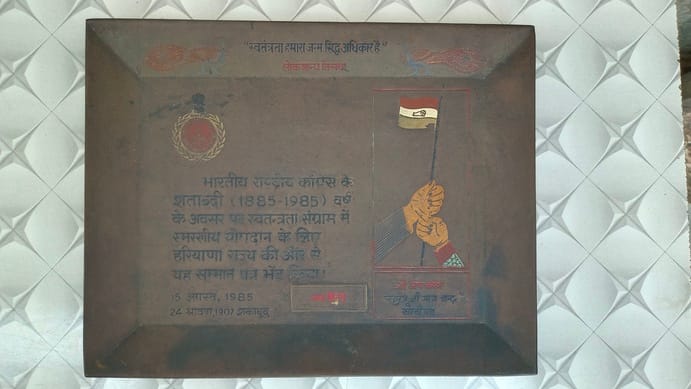 "स्वतंत्रता हमारा जन्म सिद्ध अधिकार है"
लोकमान्य तिलक
भारतीय राष्ट्रीय काँग्रेस के
शताब्दी (1885-1985) वर्ष
के अवसर पर स्वतन्त्रता संग्राम में
स्मरणीय योगदान के लिए
हरियाणा राज्य की ओर से
यह सम्मान पत्र भेंट किया।
15 अगस्त, 1985
24 श्रावण, 1907 शकाब्द